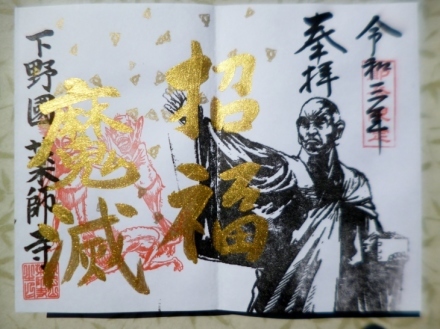 令和二年
奉拝
招福
魔滅
下野國薬師寺